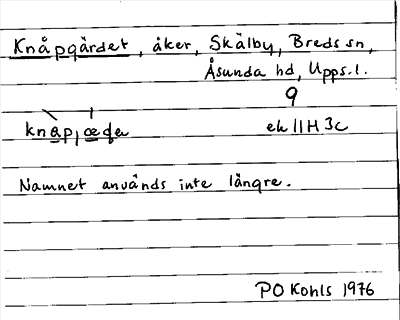 Knåpgärdet, åker, Skälby, Breds sn,
Åsunda hd, Upps. l.
9
ek 11H 3c
Namnet används inte längre.
PO Kohls 1976